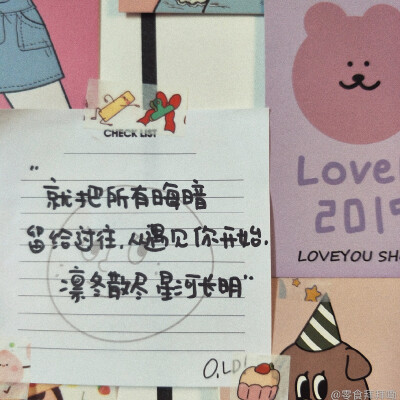 CHECK LIST
"就把所有晦暗
留给过往，从遇见你开始，
凛冬散尽 星河长明"
O.LD!
Love
2019
LOVEYOU SH